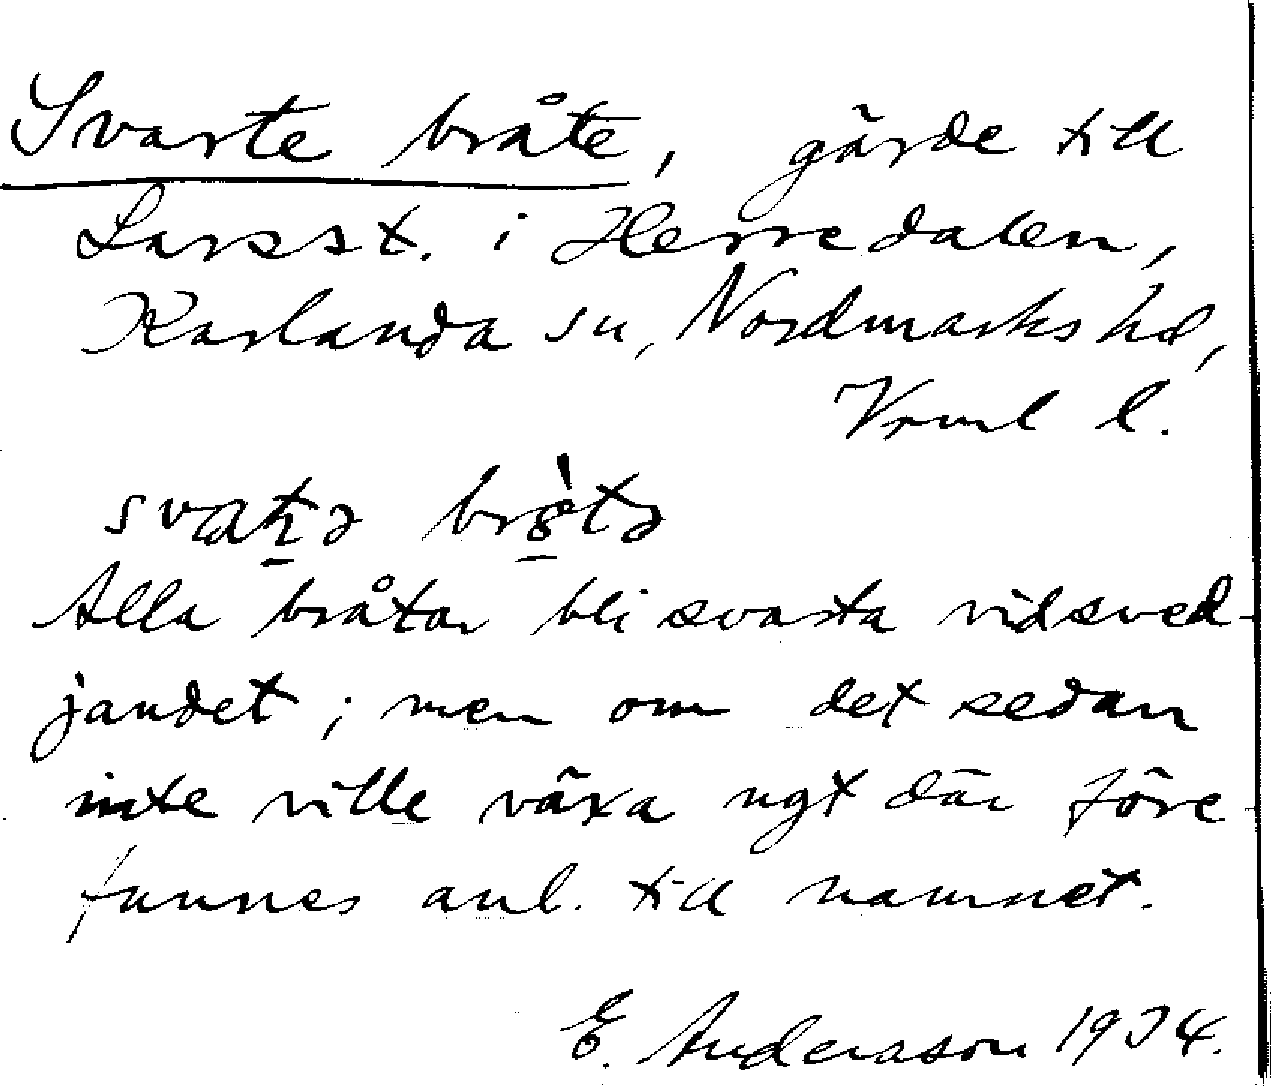 Svarte bråte, gärde till
Larsst. i Herredalen,
Karlanda sn, Nordmarks hd,
Vrml l.
Alla bråtar bli svarta vid sved-
jandet; men om det sedan
inte ville växa ngt där före
funnes anl. till namnet.
E. Andersson 1934.